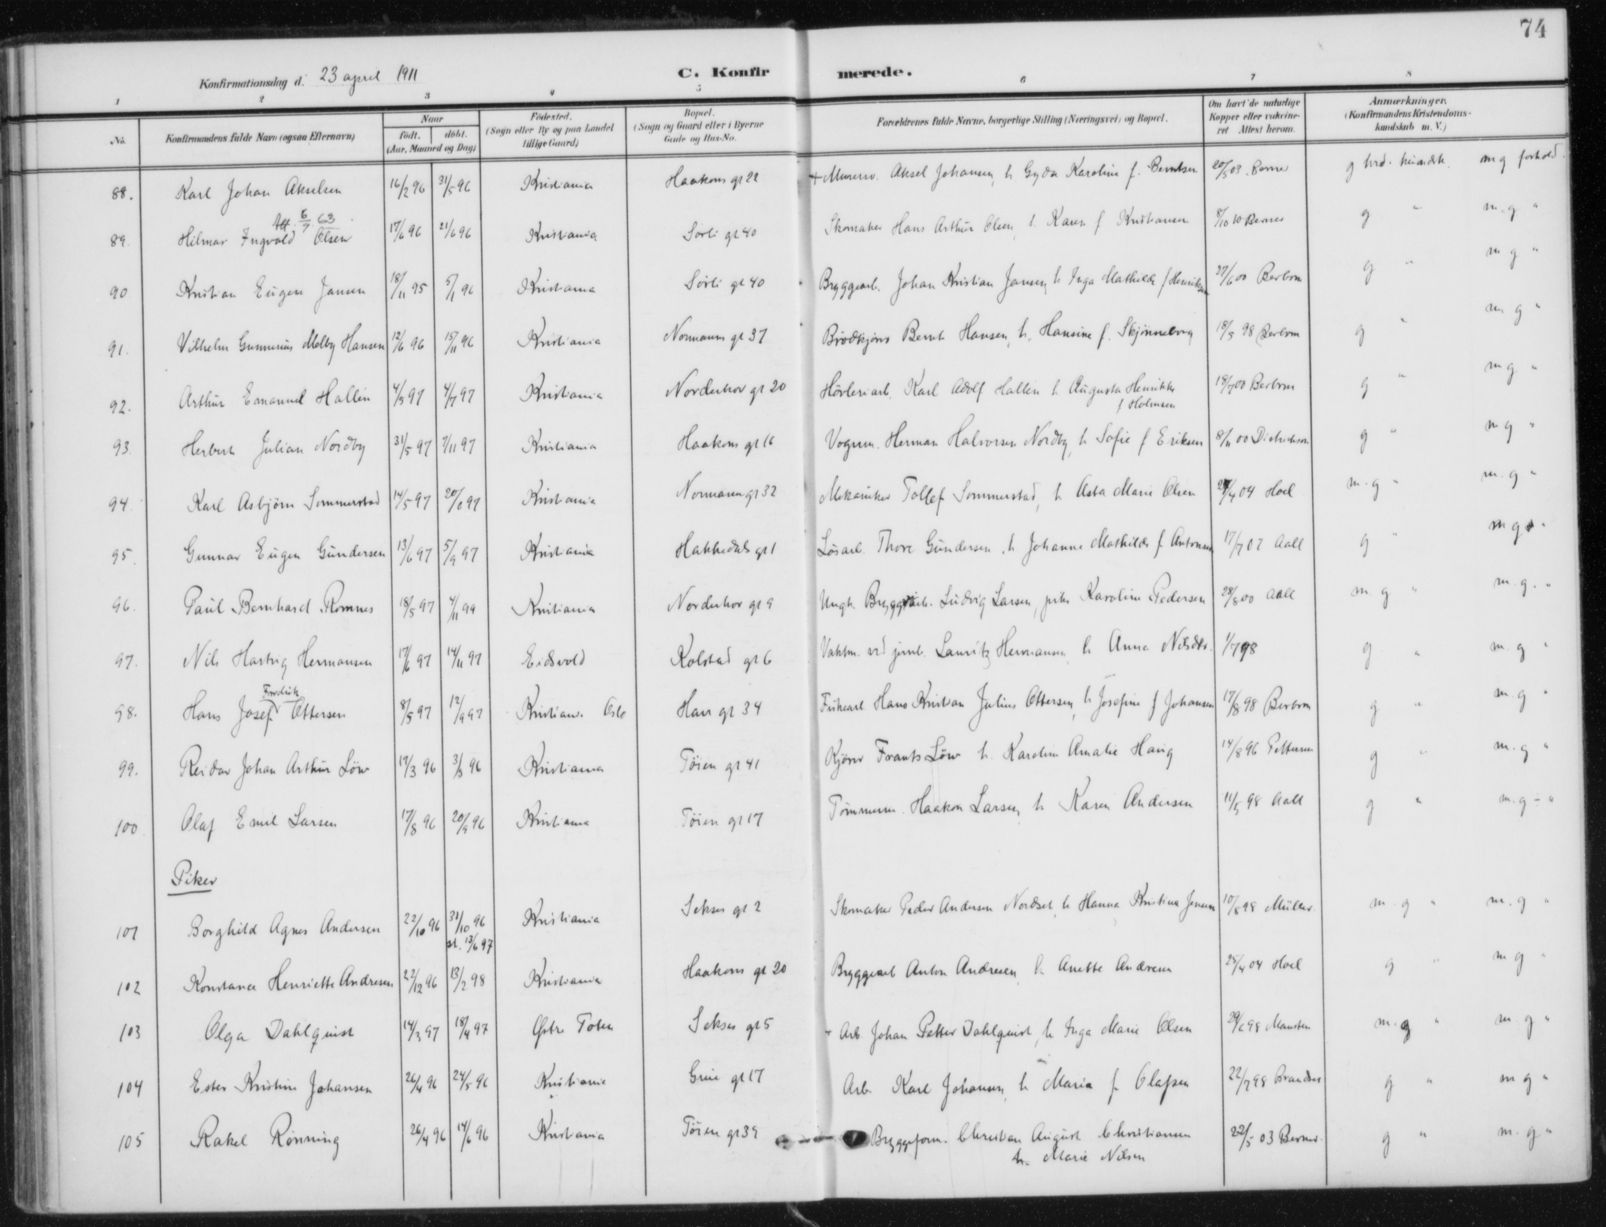 74
Konfirmationsdag d. 23 april 1911
C. Konfirmerede.
1 2 3 4 5 6 7 8
No. Konfirmandens fulde Navn (ogsaa Efternavn) Naar født. døbt. (Aar, Maaned og Dag) Fødested. (Sogn eller By og paa Landet tillige Gaard) Bopæl. (Sogn og Gaard eller i Byerne Gade og Hus-No. Forældrenes fulde Navne, borgerlige Stilling (Næringsvei) og Bopæl. Om havt de naturlige Kopper eller vaccineret Attest herom. Anmærkninger. (Konfirmandens Kristendomskundskab m. V.)
88. Karl Johan Akselsen 16/2 96 31/5 96 Kristiania Haakons gt 22 + Murerarb. Aksel Johansen, h. Gyda Karoline f. Berntsen 20/5 03 g krd. kundsk. m g forhold.
Att. 6/7 63
89. Hilmar Ingvald Olsen 17/6 96 21/6 96 Kristiania Sørli gt 40 Skomaker Hans Arthur Olsen, h. Karen f Kristiansen 8/10 10 g " m. g "
90 Kristian Eugen Jansen 18/11 95 5/1 96 Kristiania Sørli gt 40 Bryggearb. Johan Kristian Jansen, h Inga Mathilde f Henriksen 27/6 00 g " m g "
91. Vilhelm Gunnerius Melby Hansen 12/6 96 15/11 96 Kristiania Normanns gt 37 Brødkjører Bernt Hansen, h. Hansine f. Skjønneberg 18/5 98 g " m g "
92. Arthur Emanuel Hallin 4/3 97 4/7 97 Kristiania Norderhov gt 20 Høvleriarb. Karl Adolf Hallin h. Augusta Henrikke f Holmsen 19/7 00 g " m g "
93. Herbert Julian Nordby 31/5 97 7/11 97 Kristiania Haakons gt 16 Vognm. Herman Halvorsen Nordby, h Sofie f Eriksen 8/11 00 g " m g "
94. Karl Asbjørn Sommerstad 14/5 97 Kristiania Normanns gt 32 Mekaniker Tollef Sommerstad, h Asta Marie Olsen 04 Hoel m. g " m. g "
95. Gunnar Eugen Gundersen 13/6 97 5/9 97 Kristiania Hakkedals gt 1 Løsarb. Thore Gundersen, h Johanne Mathilde f Antonsen 17/7 07 Aall g " m g "
96. Paul Bernhard Romnes 18/5 97 4/11 99 Kristiania Norderhov gt 9 Ungk. Bryggearb. Ludvig Larsen, pike Karoline Pedersen 28/8 00 Aall m. g " m. g. "
97. Nils Hartvig Hermansen 17/6 97 14/11 97 Eidsvold Kolstad gt 6 Vaktm. ved jernb. Lauritz Hermansen h Anna Nilsdtr. 1/7 98 g " m. g "
98. Hans Josef Fredrik Ottersen 8/5 97 12/9 97 Kristian. Oslo Hau gt 34 Fiskearb Hans Kristian Julius Ottersen, h Josefine f Johansen 17/8 98 g " m. g "
99. Reidar Johan Arthur Løw 17/3 96 3/5 96 Kristiania Tøien gt 41 Kjører Frants Løw h. Karoline Amalie Haug 14/8 96 g " m. g "
100 Olaf Emil Larsen 17/8 96 20/9 96 Kristiania Tøien gt 17 Tømmerm. Haakon Larsen, h Karen Andersen 11/5 98 Aall g " m. g - "
Piker
101 Borghild Agnes Andersen 22/10 96 31/10 96 st. 13/6 97 Kristiania Sekses gt 2 Skomaker Peder Andersen Nordset h Hanna Kristine Jensen 10/8 98 Müller m. g " m. g "
102 Konstance Henriette Andresen 22/12 96 13/2 98 Kristiania Haakons gt 20 Bryggearb Anton Andresen h. Anette Andresen 25/4 04 Hoel g " m g "
103 Olga Dahlquist 14/3 97 18/4 97 Østre Toten Sekses gt 5 + Arb. Johan Petter Dahlquist, h Inga Marie Olsen 29/6 98 m. g " m. g "
104 Ester Kristine Johansen 26/4 96 24/5 96 Kristiania Grüe gt 17 Arb. Karl Johansen, h Maria f. Olafsen 22/7 98 g " m g "
105 Rakel Rønning 26/4 96 14/6 96 Kristiania Tøien gt 39 Bryggeform. Christian August Christiansen h. Marie Nilsen 22/5 03 g " m. g "